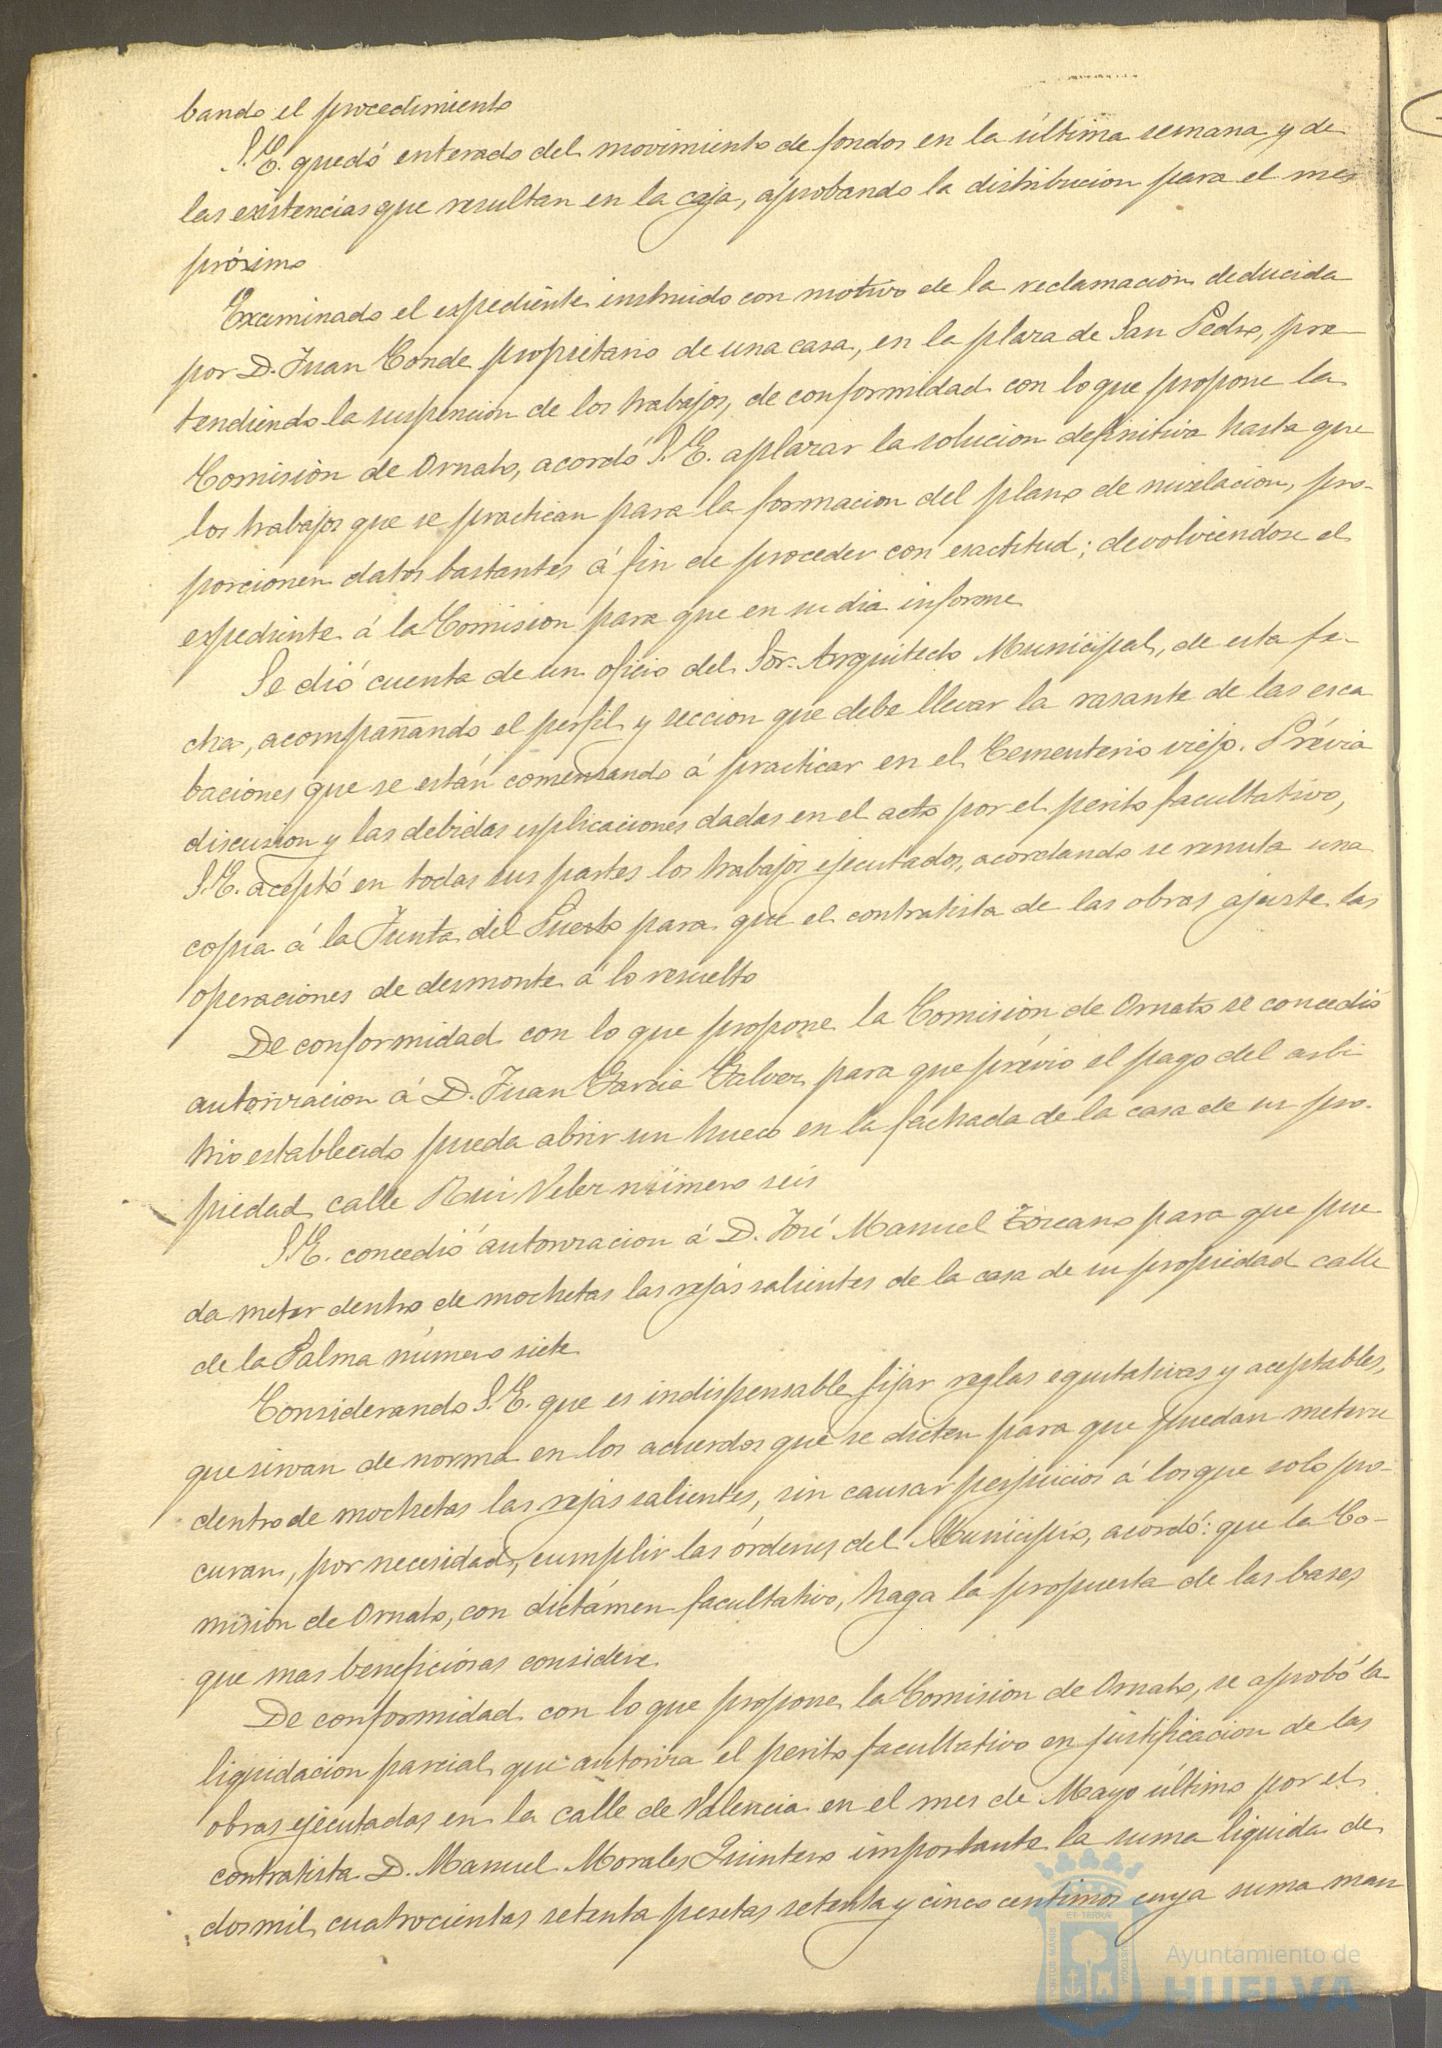 bando el procedimiento
S. E. quedó enterado del movimiento de fondos en la última semana y de
las existencias que resultan en la caja, aprobando la distribucion para el mes
próximo
Examinado el expediente instruido con motivo de la reclamacion deducida
por D. Juan Conde propietario de una casa, en la plaza de San Pedro, pre-
tendiendo la suspencion de los trabajos, de conformidad con lo que propone la
Comisión de Ornato, acordó S. E. aplazar la solucion definitiva hasta que
los trabajos que se practican para la formacion del plano de nivelacion, pro-
porcionen datos bastantes á fin de proceder con exactitud; devolviendose el
expediente á la Comision para que en su dia informe
Se dió cuenta de un oficio del Sor. Arquitecto Municipal, de esta fe-
cha, acompañando el perfil y seccion que debe llevar la rasante de las esca
baciones que se están comenzando á practicar en el Cementerio viejo. Prévia
discusion y las debidas esplicaciones dadas en el acto por el perito facultativo,
S. E. aceptó en todas sus partes los trabajos ejecutados, acordando se remita una
copia á la Junta del Puerto para que el contratista de las obras ajuste las
operaciones de desmonte á lo resuelto
De conformidad con lo que propone la Comisión de Ornato se concedió
autorizacion á D. Juan Garcia Galvez para que prévio el pago del arbi
trio establecido pueda abrir un hueco en la fachada de la casa de su pro-
piedad calle Rui Velez número seis
S. E. concedió autorizacion á D. José Manuel Toscano para que pue
da meter dentro de mochetas las rejas salientes de la casa de su propiedad calle
de la Palma número siete
Considerando S. E. que es indispensable fijar reglas equitativas y aceptables,
que sirvan de norma en los acuerdos que se dicten para que puedan meterse
dentro de mochetas las rejas salientes, sin causar perjuicios á los que solo pro-
curan, por necesidad, cumplir las órdenes del Municipio, acordó: que la Co-
misión de Ornato, con dictámen facultativo, haga la propuesta de las bases
que mas beneficiosas considere
De conformidad con lo que propone la Comisión de Ornato, se aprobó la
liquidacion parcial que autoriza el perito facultativo en justificacion de las
obras ejecutadas en la calle de Valencia en el mes de Mayo último por el
contratista D. Manuel Morales Quintero importante la suma liquida de
dos mil cuatrocientas setenta pesetas setenta y cinco centimos cuya suma man
Ayuntamiento de
HUELVA